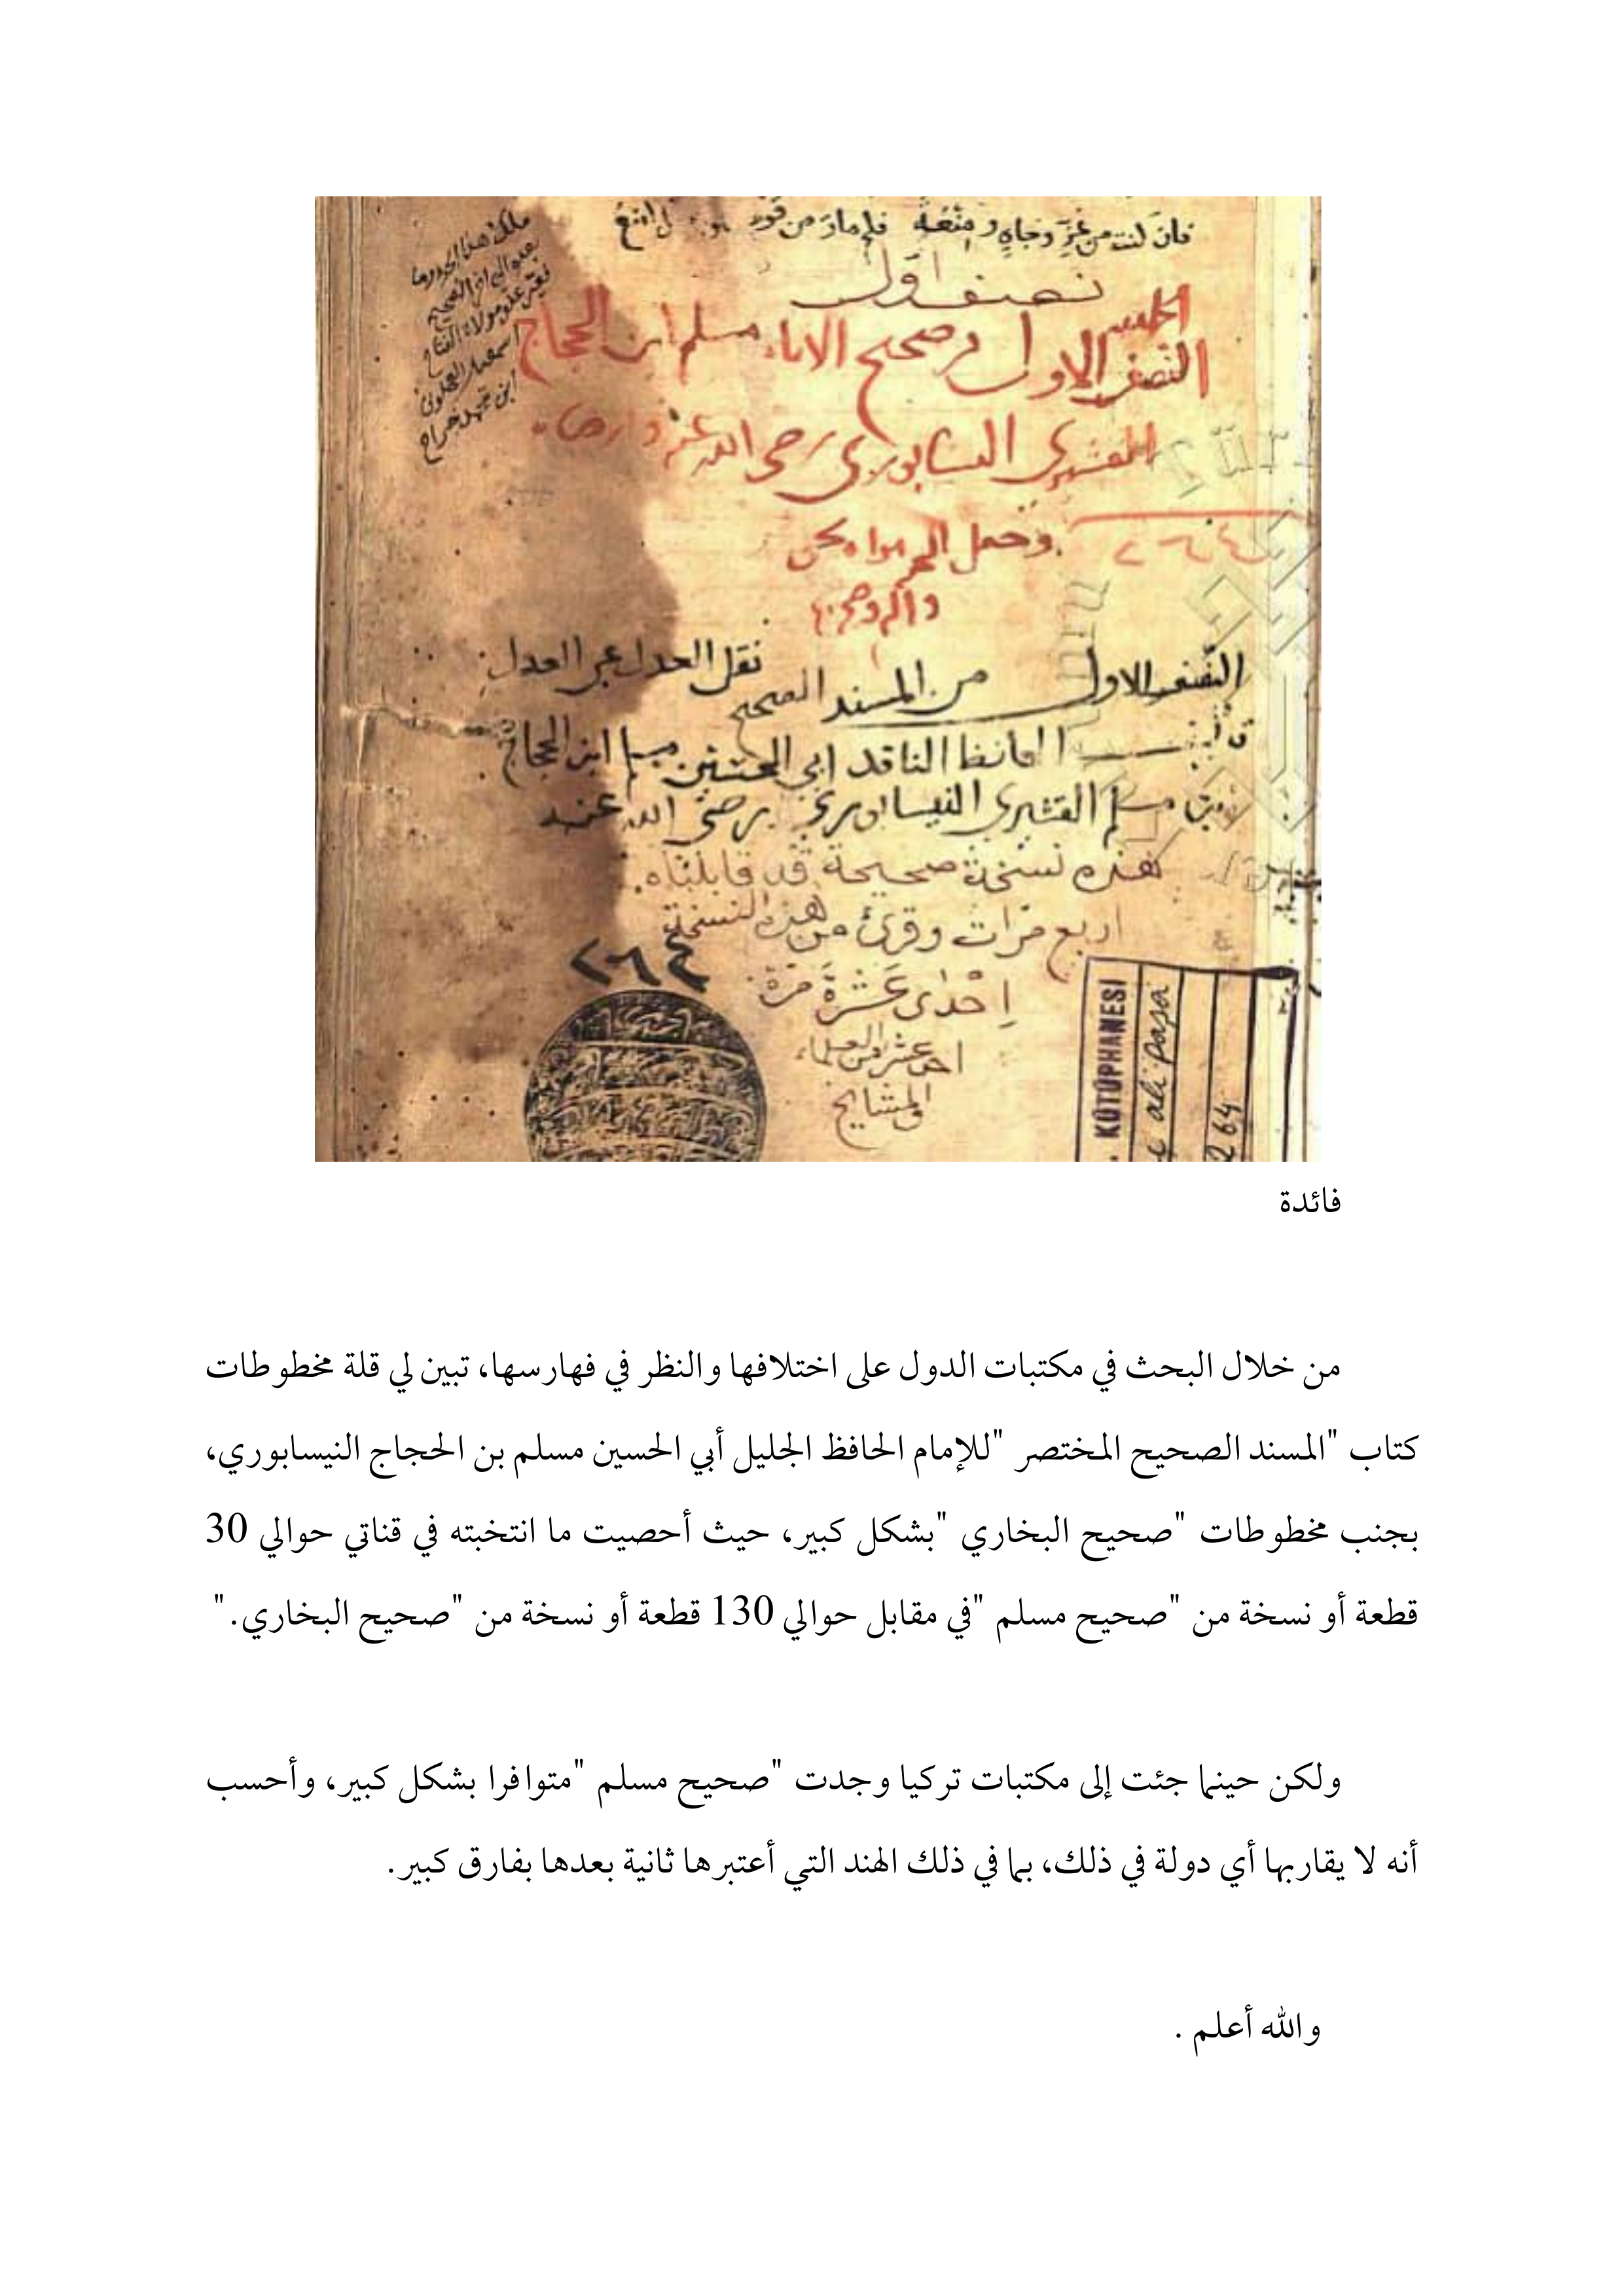 فان كنت من عز وجاه ومنعة فلم مات من
نصف اول
النصف الاول من صحيح الامام مسلم ابن الحجاج
القشيري النيسابوري رضي الله عنه وارضاه
٢٦٤
النصف الاول من المسند الصحيح نقل العدل عن العدل
تأليف الحافظ الناقد ابي الحسين مسلم ابن الحجاج
بن مسلم القشيري النيسابوري رضي الله عنه
هذه نسخة صحيحة قد قابلناه
اربع مرات وقرئ من هذه النسخة
٢٦٤
اِحْدى عَشْرَةَ مَرّة
احد عشر من العلماء
والمشايخ
KÜTÜPHANESİ
ali paşa
264
فائدة
من خلال البحث في مكتبات الدول على اختلافها والنظر في فهارسها، تبين لي قلة مخطوطات
كتاب "المسند الصحيح المختصر "للإمام الحافظ الجليل أبي الحسين مسلم بن الحجاج النيسابوري،
بجنب مخطوطات "صحيح البخاري "بشكل كبير، حيث أحصيت ما انتخبته في قناتي حوالي 30
قطعة أو نسخة من "صحيح مسلم "في مقابل حوالي 130 قطعة أو نسخة من "صحيح البخاري."
ولكن حينما جئت إلى مكتبات تركيا وجدت "صحيح مسلم "متوافرا بشكل كبير، وأحسب
أنه لا يقاربها أي دولة في ذلك، بما في ذلك الهند التي أعتبرها ثانية بعدها بفارق كبير.
والله أعلم .